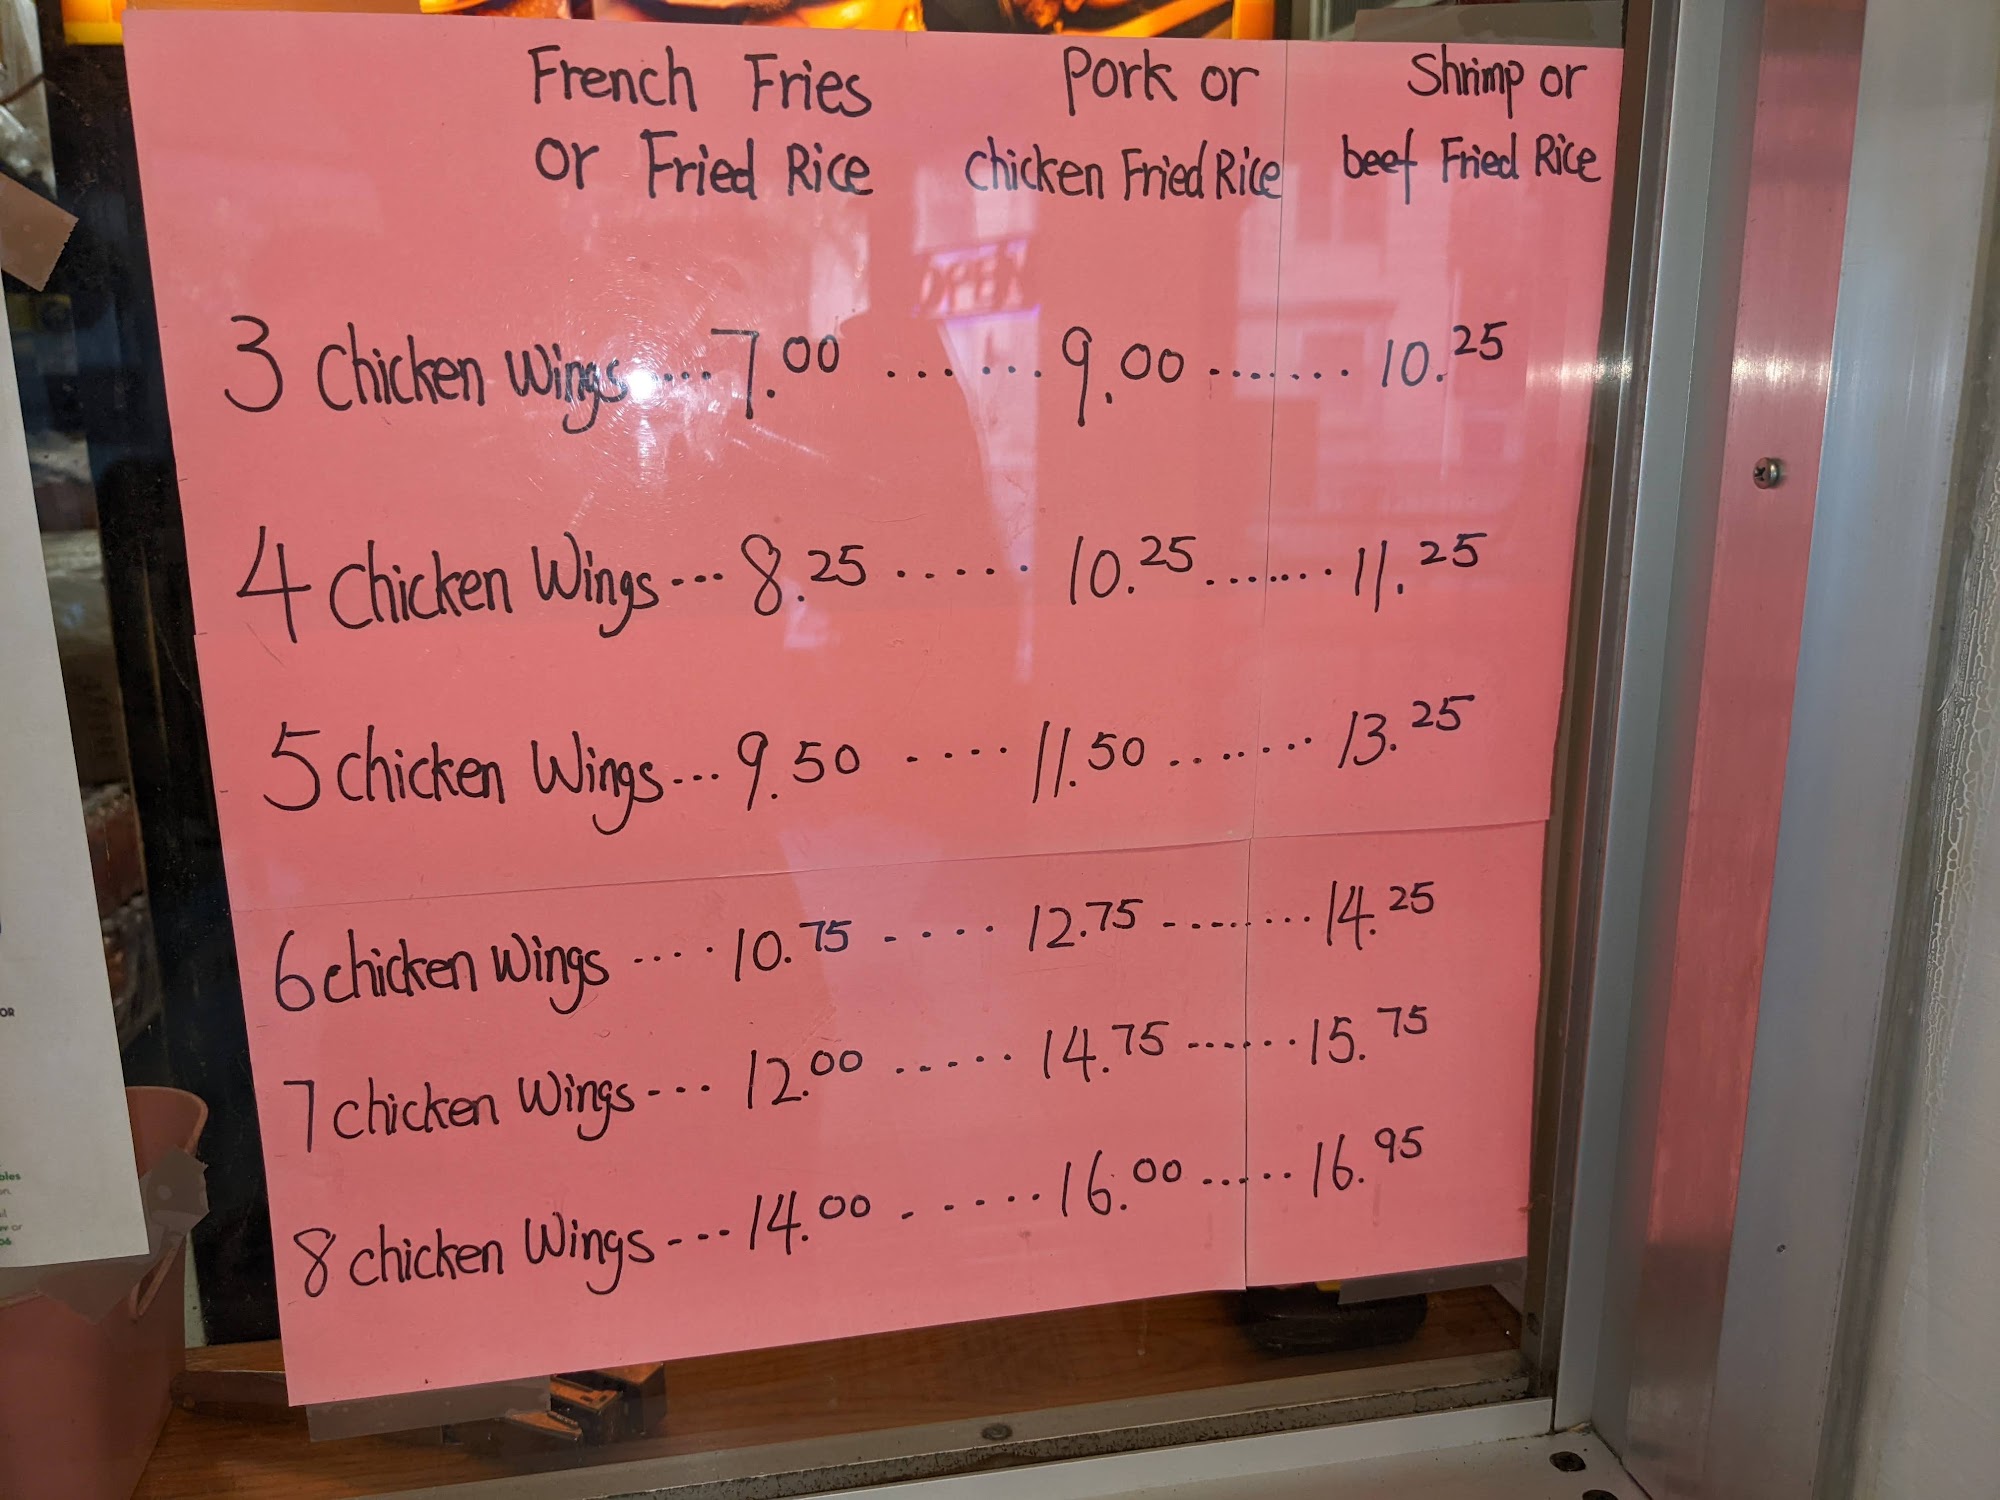 French Fries
or Fried Rice
Pork or
chicken Fried Rice
Shrimp or
beef Fried Rice
3 Chicken Wings ... 7.00 ...... 9.00 ....... 10.25
4 Chicken Wings --- 8.25 ..... 10.25 ....... 11.25
5 chicken Wings --- 9.50 .... 11.50 ....... 13.25
6 chicken Wings .... 10.75 .... 12.75 ....... 14.25
7 chicken Wings --- 12.00 ..... 14.75 ....... 15.75
8 chicken Wings --- 14.00 ..... 16.00 ...... 16.95
OPEN
OR